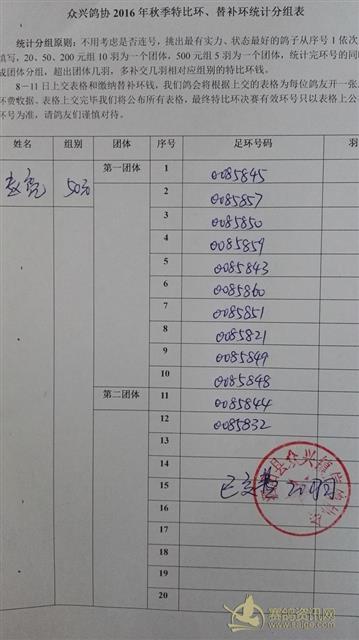 众兴鸽协 2016 年秋季特比环、替补环统计分组表
统计分组原则：不用考虑是否连号，挑出最有实力、状态最好的鸽子从序号 1 依次
填写，20、50、200 元组 10 羽为一个团体，500 元组 5 羽为一个团体，统计完环号的同
成团体分组，超出团体几羽，多补交几羽相对应组别的特比环钱。
8－11 日上交表格和缴纳替补环钱，我们鸽会将根据上交的表格为每位鸽友开一张
环费收据。表格上交完毕我们将公布所有表格，最终特比环决赛有效环号只以表格上公
环号为准，请鸽友们谨慎对待。
姓名 组别 团体 序号 足环号码 羽
50元 第一团体 1 0085845
2 0085857
3 0085850
4 0085859
5 0085843
6 0085860
7 0085851
8 0085821
9 0085849
10 0085848
第二团体 11 0085844
12 0085832
13
14
15 已交替
16
17
18
19
20
赛鸽资讯网